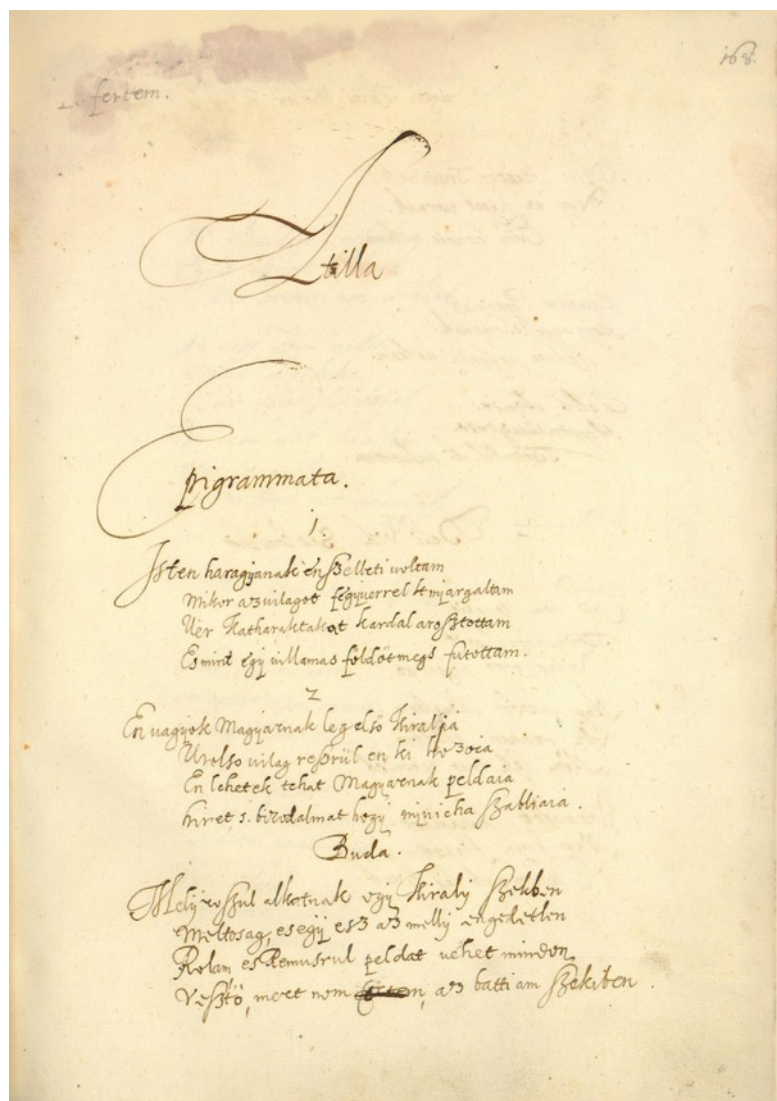 168.
fertem.
Atilla
Epigrammata.
1.
Isten haragjanak én szelleti voltam
Mikor az vilagot fegyuerrel
Uér Katharaktakat kardal arosztottam
Es mint egy villamas földöt megs futottam.
2
En vagyok Magyarnak leg elsö Kiralia
Utolso vilag reszrül en ki hozoia
En lehetek tehat Magyarnak peldaia
hiret, s. birodalmat hogy szabliaia.
Buda.
Mely roszul alkotnak egy Kiraly szekben
Meltosag, es egy esz az melly engedetlen
Rolam es Remusrul peldat vehet minden
Vesztö, mert nem az battiam szekiben.